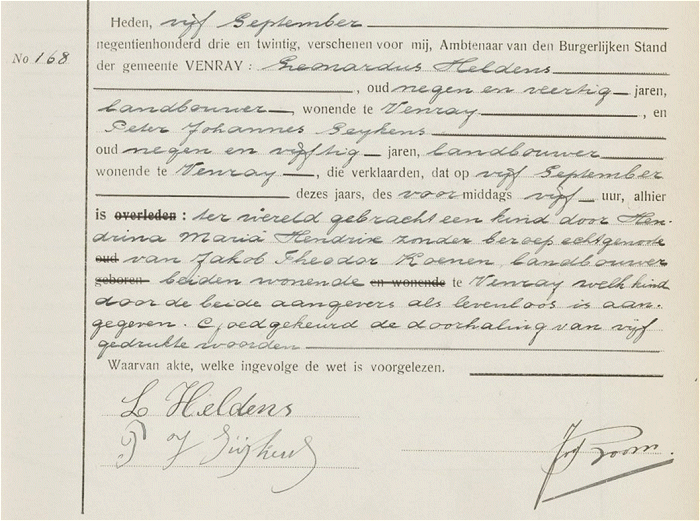 Heden, vijf September
negentienhonderd drie en twintig, verschenen voor mij, Ambtenaar van den Burgerlijken Stand
No 168
der gemeente VENRAY : Leonardus Heldens
, oud negen en veertig jaren,
landbouwer, wonende te Venray, en
Peter Johannes Geykens
oud negen en vijftig jaren, landbouwer
wonende te Venray, die verklaarden, dat op vijf September
dezes jaars, des voormiddags vijf uur, alhier
is overleden : ter wereld gebracht een kind door Hen-
drina Maria Hendrix zonder beroep echtgenoote
oud van Jakob Theodor Koenen, landbouwer
geboren beiden wonende en wonende te Venray welk kind
door de beide aangevers als levenloos is aan-
gegeven. Goedgekeurd de doorhaling van vijf
gedrukte woorden
Waarvan akte, welke ingevolge de wet is voorgelezen.
L Heldens
P J